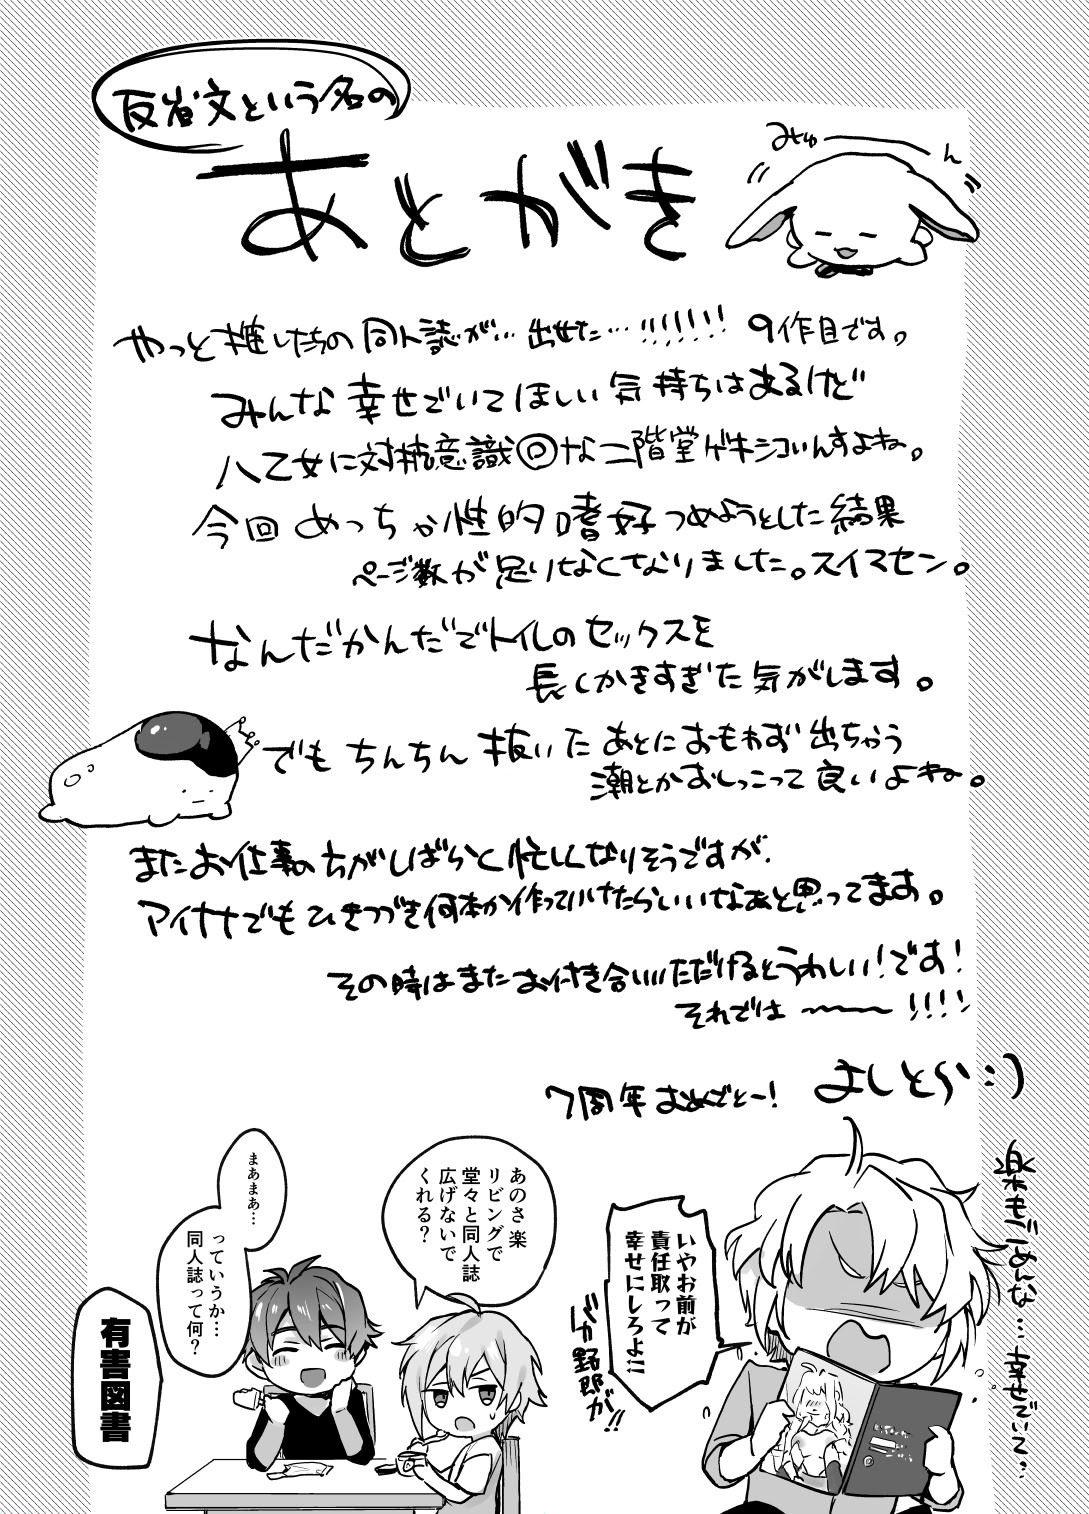 反省文という名の
あとがき
みゅーーん
やっと推したちの同人誌が…出せた…!!!!!!! 9作目です。
みんな幸せでいてほしい気持ちはあるけど
八乙女に対抗意識◎な二階堂ゲキシコいんすよね。
今回めっちゃ性的嗜好つめようとした結果
ページ数が足りなくなりました。スイマセン。
なんだかんだでトイレのセックスを
長くかきすぎた気がします。
でもちんちん抜いたあとにおもわず出ちゃう
潮とかおしっこって良いよね。
またお仕事のちがしばらく忙しくなりそうですが、
アイナナでもひきつづき何本か作っていけたらいいなぁと思ってます。
その時はまたお付き合いいただけるとうれしい!です!
それでは〜〜〜!!!!
7周年おめでとー!
よしとら:)
楽もごめんな…幸せでいて?
いやお前が
責任取って
幸せにしろよ!!
バカ野郎が!!
あのさ楽
リビングで
堂々と同人誌
広げないで
くれる?
まあまあ…
っていうか…
同人誌って何?
有害図書